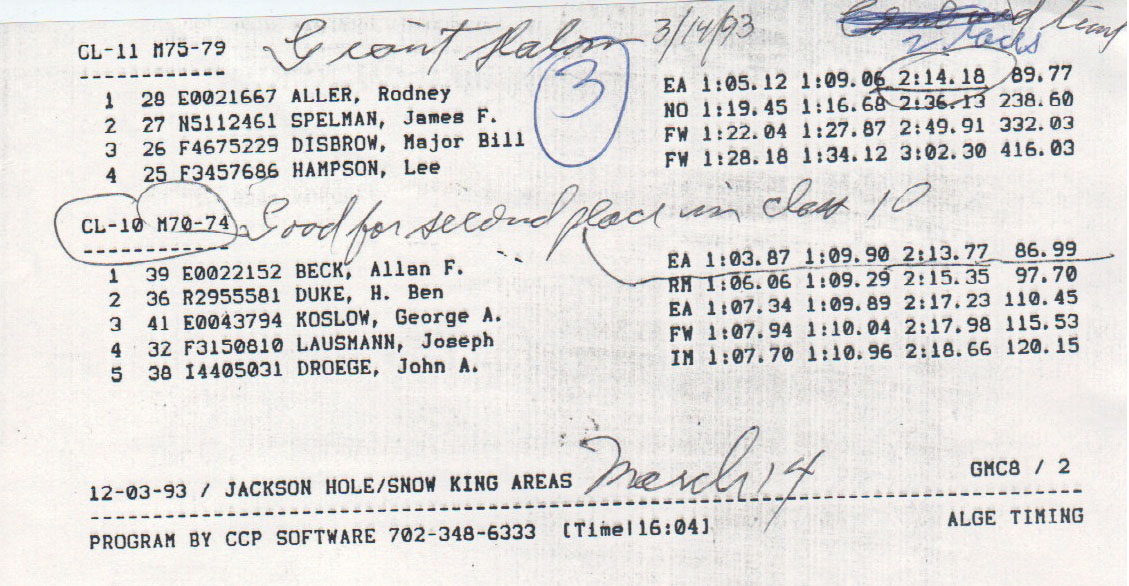 Giant Slalom 3/14/93 Combined time
2 races
CL-11 M75-79
3
1 28 E0021667 ALLER, Rodney EA 1:05.12 1:09.06 2:14.18 89.77
2 27 N5112461 SPELMAN, James F. NO 1:19.45 1:16.68 2:36.13 238.60
3 26 F4675229 DISBROW, Major Bill FW 1:22.04 1:27.87 2:49.91 332.03
4 25 F3457686 HAMPSON, Lee FW 1:28.18 1:34.12 3:02.30 416.03
CL-10 M70-74 Good for second place in class 10
1 39 E0022152 BECK, Allan F. EA 1:03.87 1:09.90 2:13.77 86.99
2 36 R2955581 DUKE, H. Ben RM 1:06.06 1:09.29 2:15.35 97.70
3 41 E0043794 KOSLOW, George A. EA 1:07.34 1:09.89 2:17.23 110.45
4 32 F3150810 LAUSMANN, Joseph FW 1:07.94 1:10.04 2:17.98 115.53
5 38 I4405031 DROEGE, John A. IM 1:07.70 1:10.96 2:18.66 120.15
12-03-93 / JACKSON HOLE/SNOW KING AREAS March 14 GMC8 / 2
PROGRAM BY CCP SOFTWARE 702-348-6333 [Time|16:04] ALGE TIMING